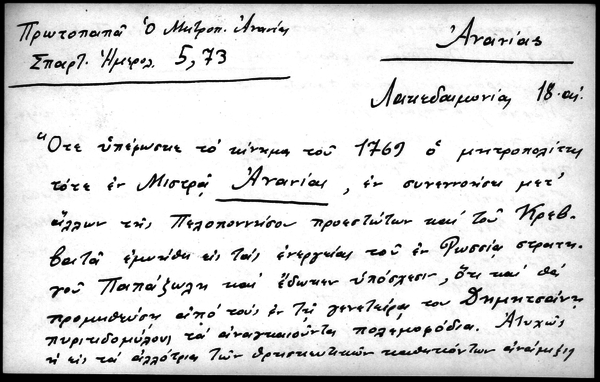 Πρωτοπαπᾶ Ὁ Μητροπ. Ἀνανίας
Σπαρτ. Ἡμερολ. 5,73
Ἀνανίας
Λακεδαιμονίας 18. αἰ.
"Ὅτε ὑπέρωσκε τό κίνημα τοῦ 1769 ὁ μητροπολίτης
τότε ἐν Μιστρᾷ Ἀνανίας, ἐν συνεννοήσει μετ'
ἄλλων τῆς Πελοποννήσου προεστώτων καί τοῦ Κρεβ-
βατᾶ ἐμυήθη εἰς τάς ἐνεργείας τοῦ ἐν Ρωσσίᾳ στρατη-
γοῦ Παπάζωλη καί ἔδωκεν ὑπόσχεσιν, ὅτι καί θά
προμηθεύσῃ ἀπό τούς ἐν τῇ γενετείρᾳ του Δημητσάνῃ
πυριτιδομύλους τά ἀναγκαιοῦντα πολεμοφόδια. Ἀτυχῶς
ἡ εἰς τά ἀλλότρια τῶν θρησκευτικῶν καθηκόντων ἀνάμειξις